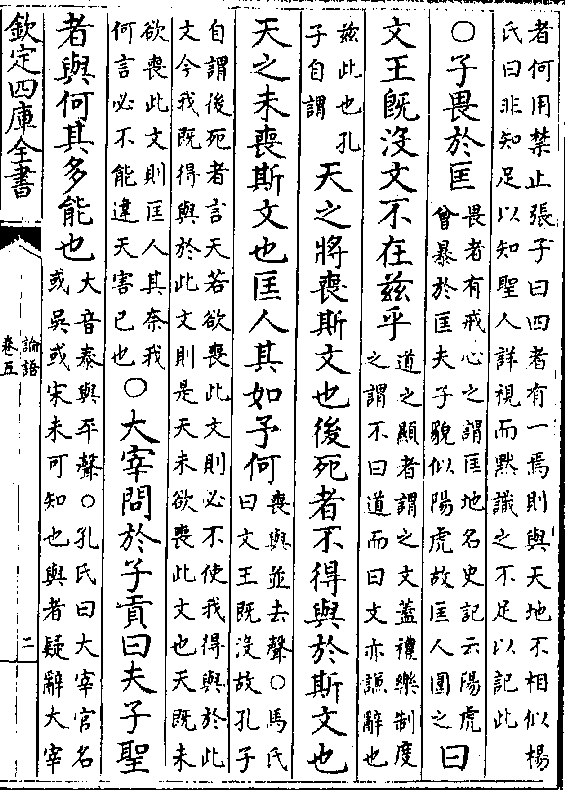 者何用禁止張子曰四者有一焉則與天地不相似楊
氏曰非知足以知聖人詳視而默識之不足以記此
○子畏於匡
畏者有戒心之謂匡地名史記云陽虎
曾暴於匡夫子貌似陽虎故匡人圍之
曰
文王既没文不在兹乎
道之顯者謂之文蓋禮樂制度
之謂不曰道而曰文亦謙辭也
兹此也孔
子自謂
天之將喪斯文也後死者不得與於斯文也
天之未喪斯文也匡人其如予何
喪與並去聲○馬氏
曰文王既没故孔子
自謂後死者言天若欲喪此文則必不使我得與於此
文今我既得與於此文則是天未欲喪此文也天既未
欲喪此文則匡人其奈我
何言必不能違天害已也
○大宰問於子貢曰夫子聖
者與何其多能也
大音泰與平聲○孔氏曰大宰官名
或吳或宋未可知也與者疑辭大宰
欽定四庫全書
論語
卷五
二